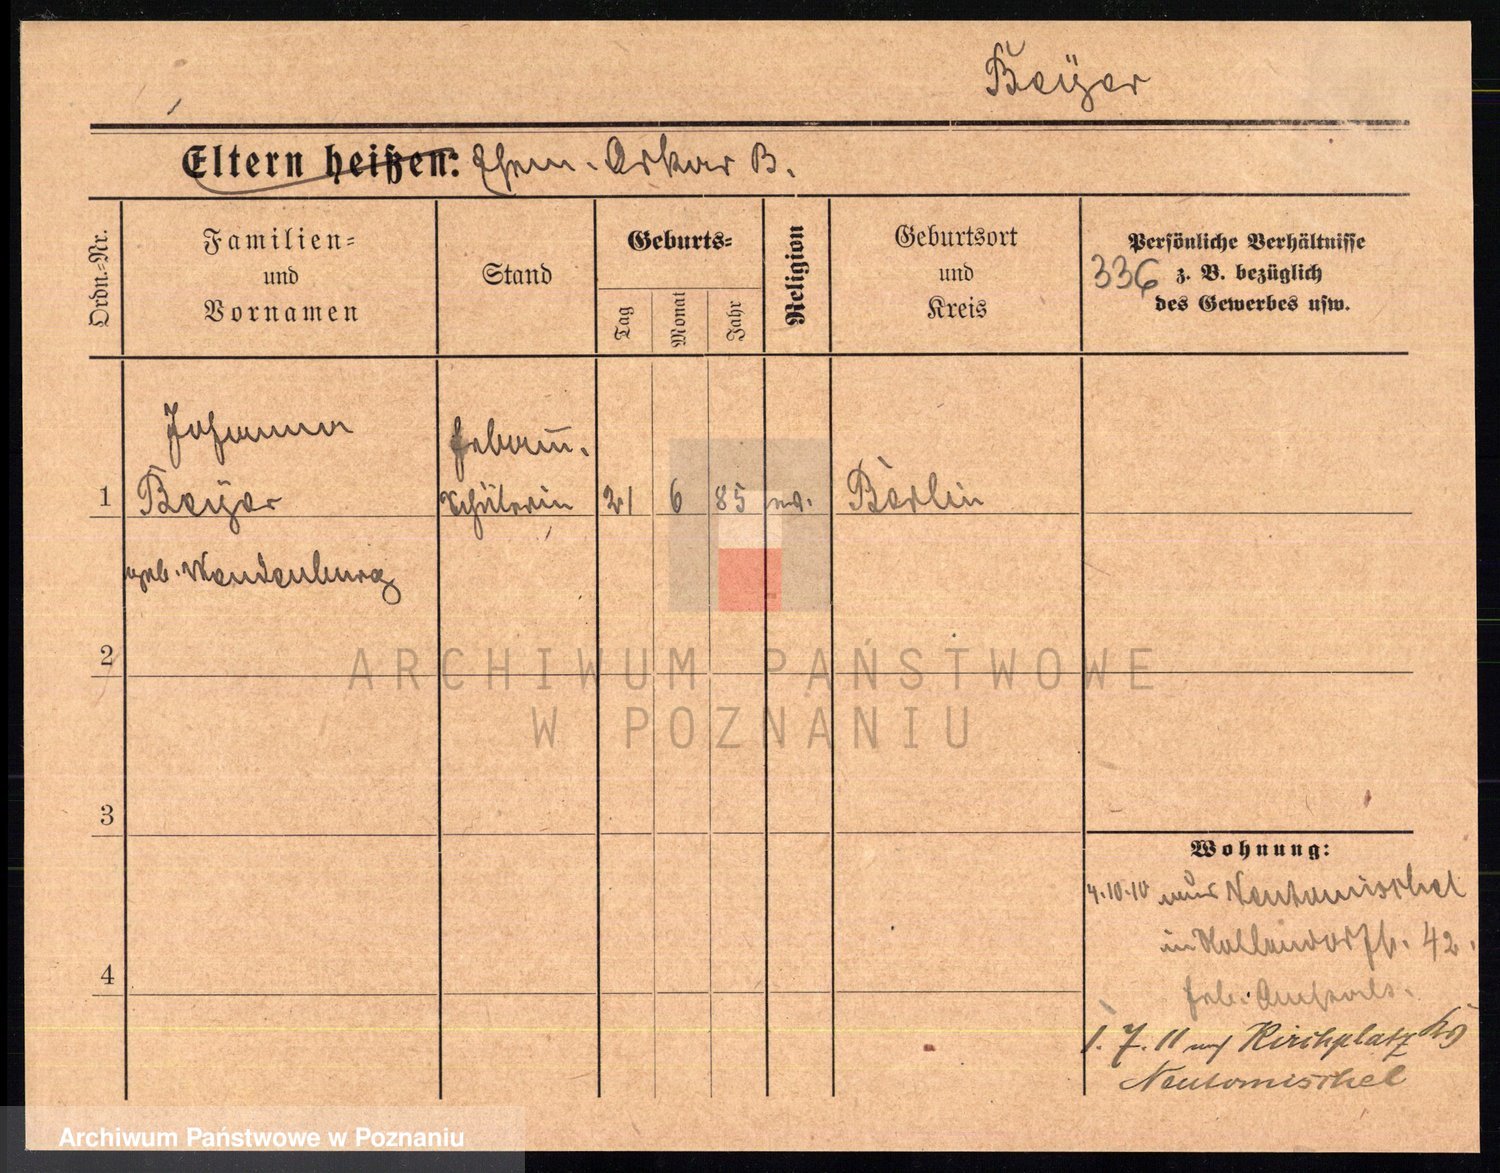 Beÿer
Eltern heißen: Ehem. Oskar B.
Ordn.-Nr.
Familien-
und
Vornamen
Stand
Geburts-
Tag
Monat
Jahr
Religion
Geburtsort
und
Kreis
Persönliche Verhältnisse
336 z. B. bezüglich
des Gewerbes usw.
Johanna
Hebam̅.
1 Beÿer Schülerin 21 6 85 ev. Berlin
geb. Wendenburg
2
ARCHIWUM PAŃSTWOWE
W POZNANIU
3
Wohnung:
4.10.10 aus Neutomischel
in 42.
4
Heb.
1.7.11 auf Kirchplatz
Neutomischel
Archiwum Państwowe w Poznaniu